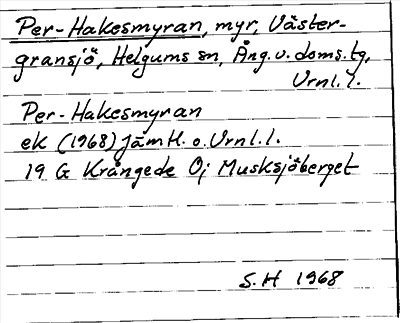 Per-Hakesmyran, myr, Väster-
gransjö, Helgums sn, Ång. v. doms. tg,
Vrnl. l.
Per-Hakesmyran
ek (1968) Jämtl. o. Vrnl. l.
19 G Krångede Oj Musksjöberget
S. H 1968